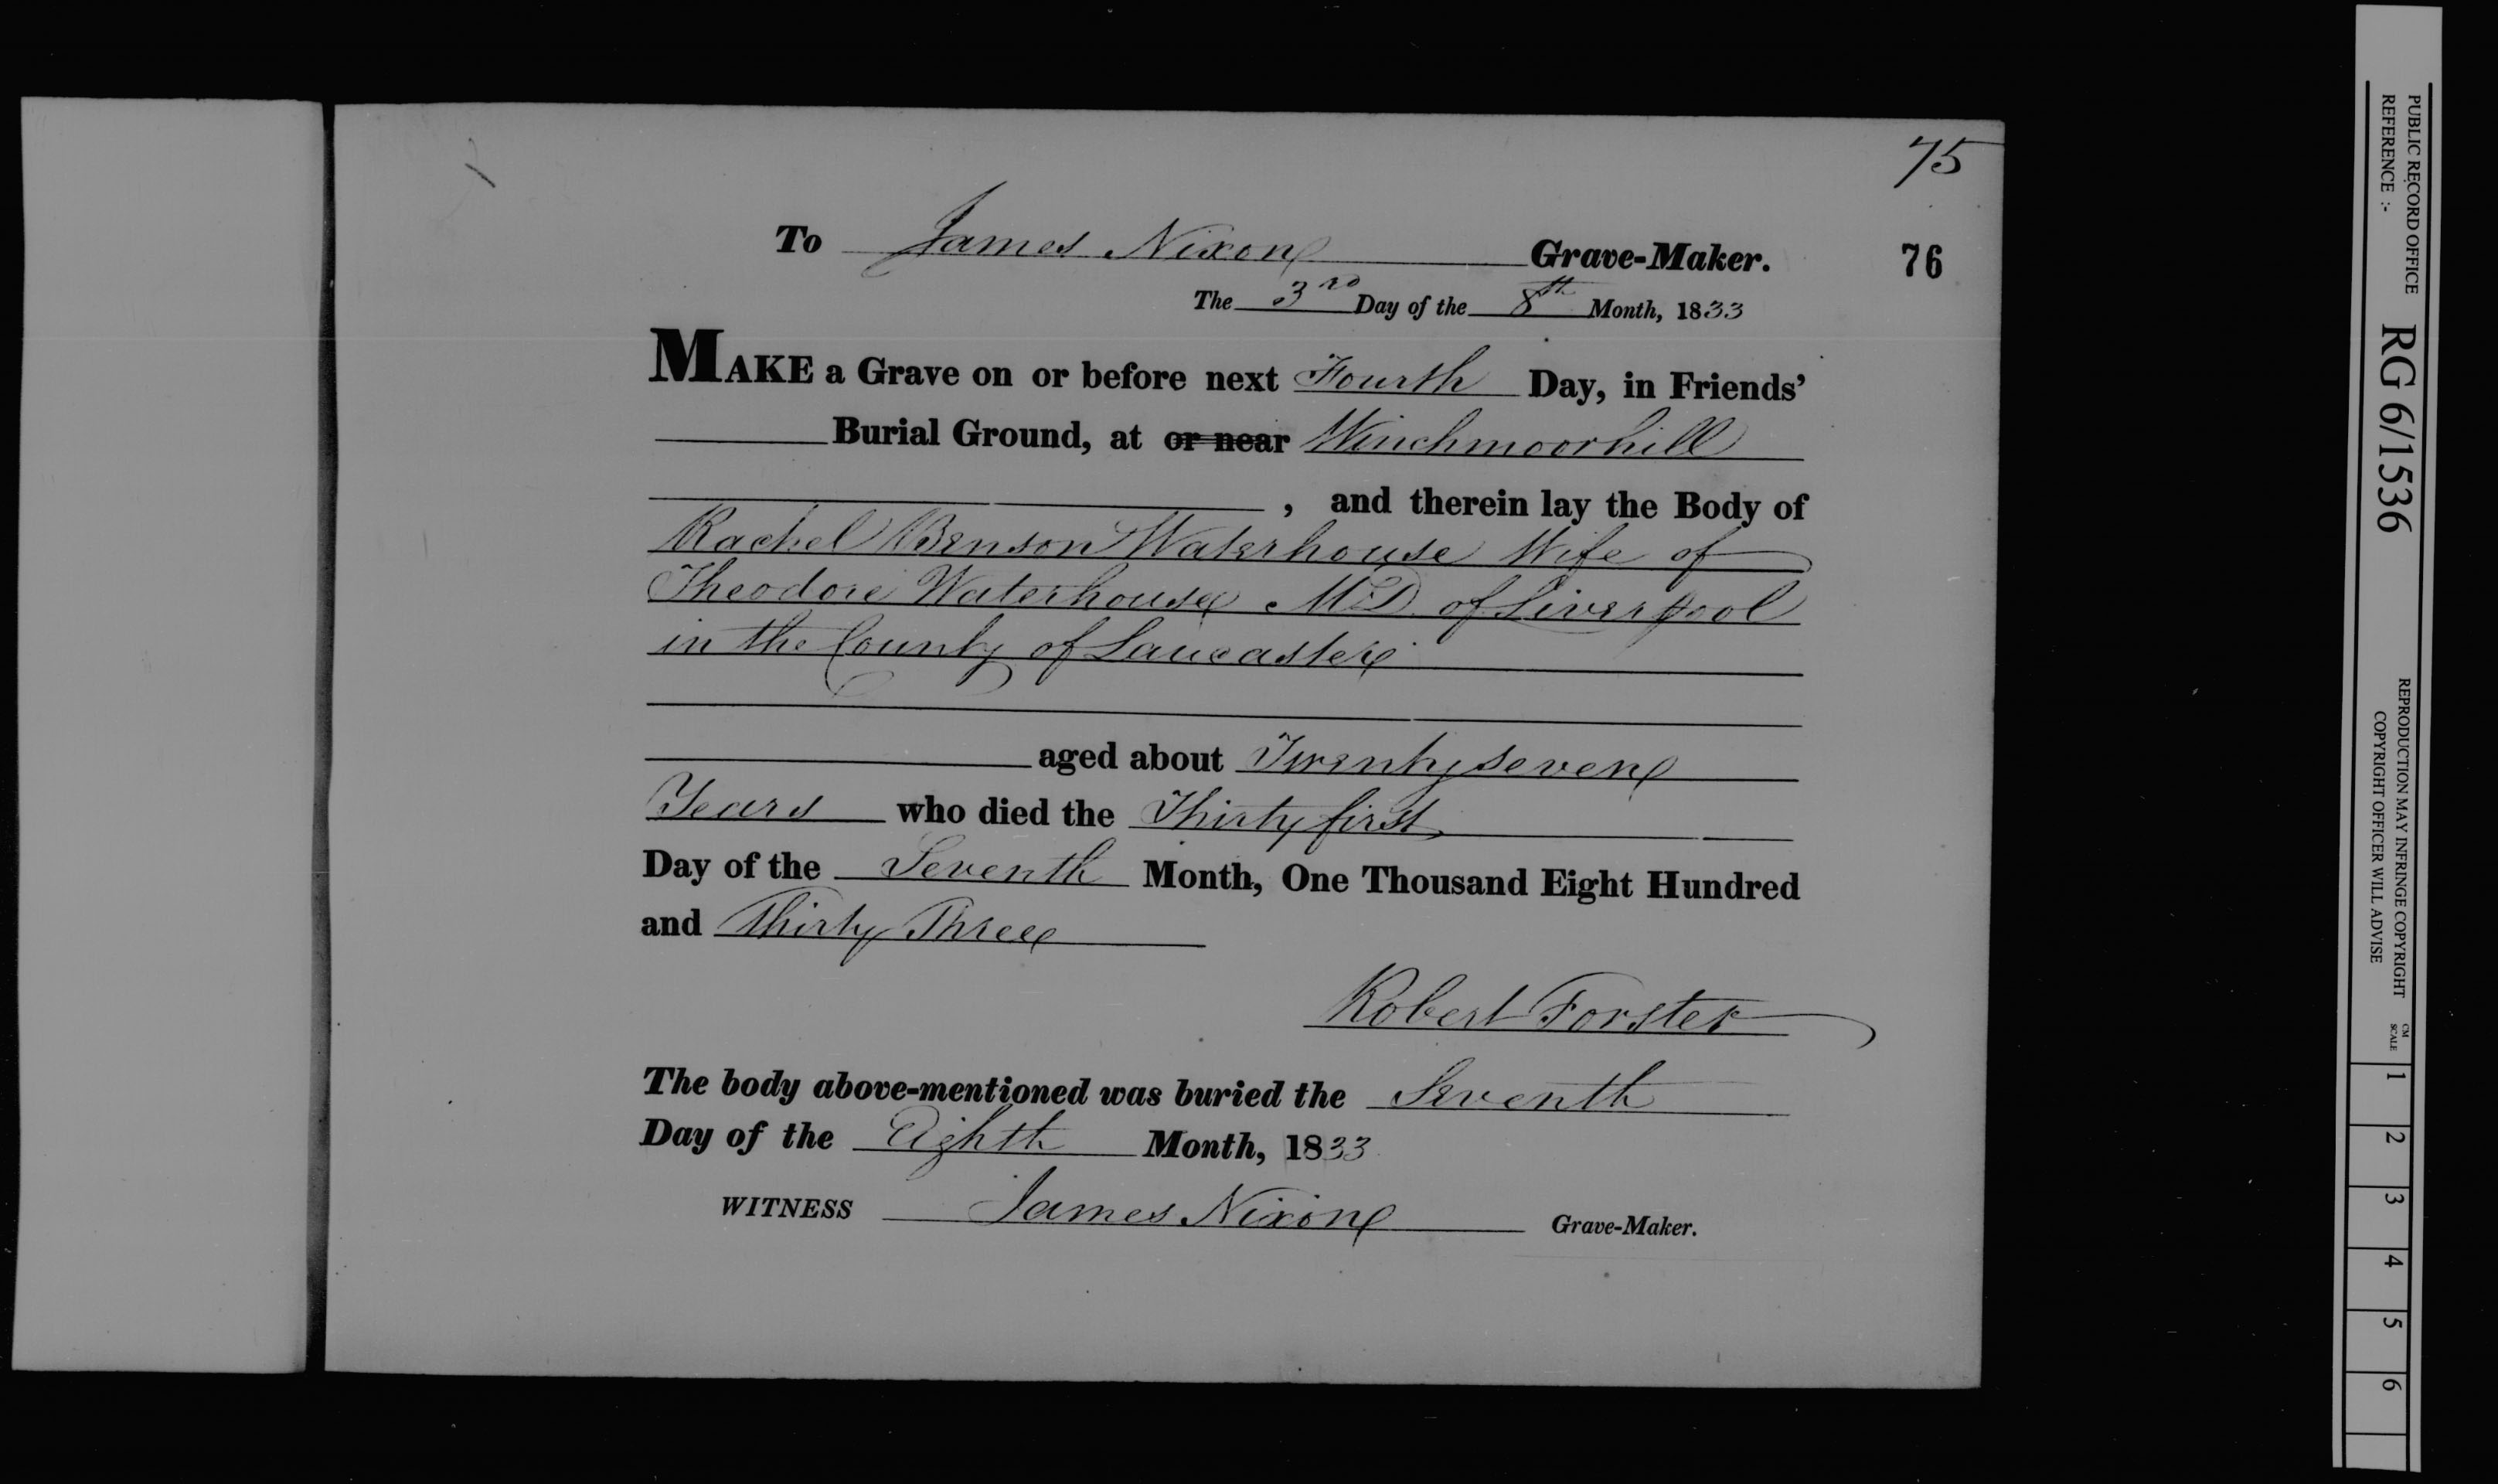 75
To James Nixon Grave-Maker.
76
The 3rd Day of the 8th Month, 1833
MAKE a Grave on or before next Fourth Day, in Friends'
Burial Ground, at or near Winchmoorhill
, and therein lay the Body of
Rachel Benson Waterhouse Wife of
Theodore Waterhouse MD of Liverpool
in the County of Lancaster
aged about Twenty seven
Years who died the Thirty first
Day of the Seventh Month, One Thousand Eight Hundred
and Thirty Three
Robert Forster
The body above-mentioned was buried the Seventh
Day of the Eighth Month, 1833
WITNESS James Nixon Grave-Maker.
PUBLIC RECORD OFFICE
REFERENCE :-
RG 6/1536
REPRODUCTION MAY INFRINGE COPYRIGHT
COPYRIGHT OFFICER WILL ADVISE
CM
SCALE
1
2
3
4
5
6